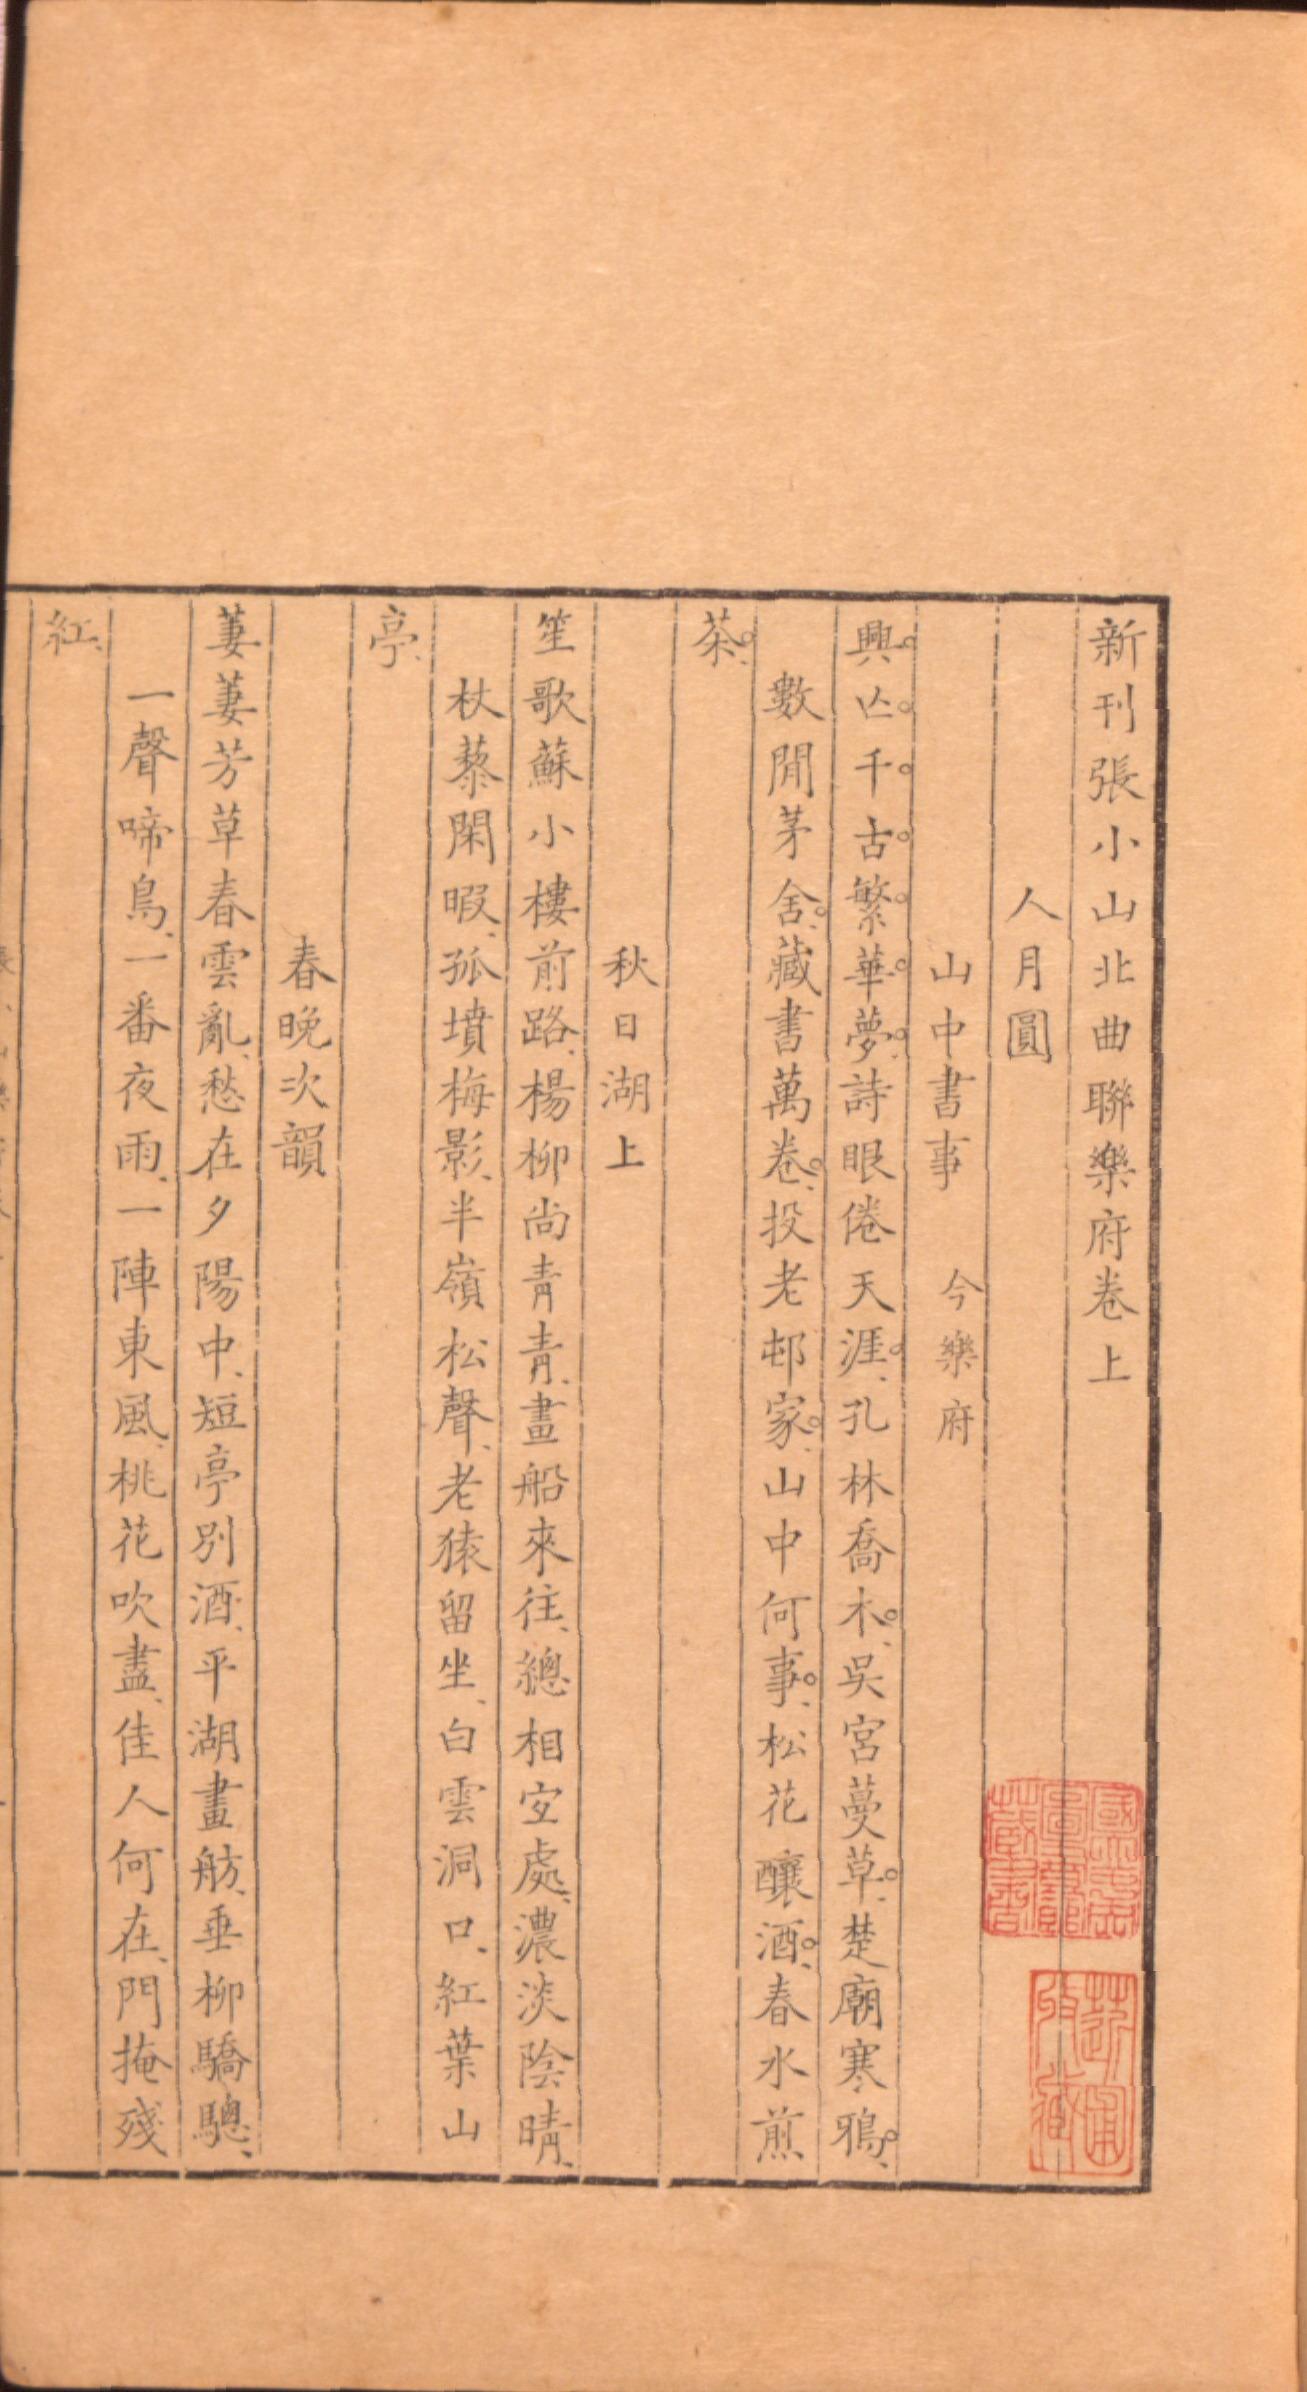 新刊張小山北曲聯樂府卷上
人月圓
山中書事　今樂府
興亾千古繁華夢詩眼倦天涯孔林喬木吳宮蔓草楚廟寒鴉
數閒茅舍藏書萬卷投老邨家山中何事松花釀酒春水煎
茶
秋日湖上
笙歌蘇小樓前路楊柳尚青青畫船來往總相宐處濃淡陰晴
杖藜閑暇孤墳梅影半嶺松聲老猿留坐白雲洞口紅葉山
亭
春晚次韻
萋萋芳草春雲亂愁在夕陽中短亭別酒平湖畫舫垂柳驕驄
一聲啼鳥一番夜雨一陣東風桃花吹盡佳人何在門掩殘
紅